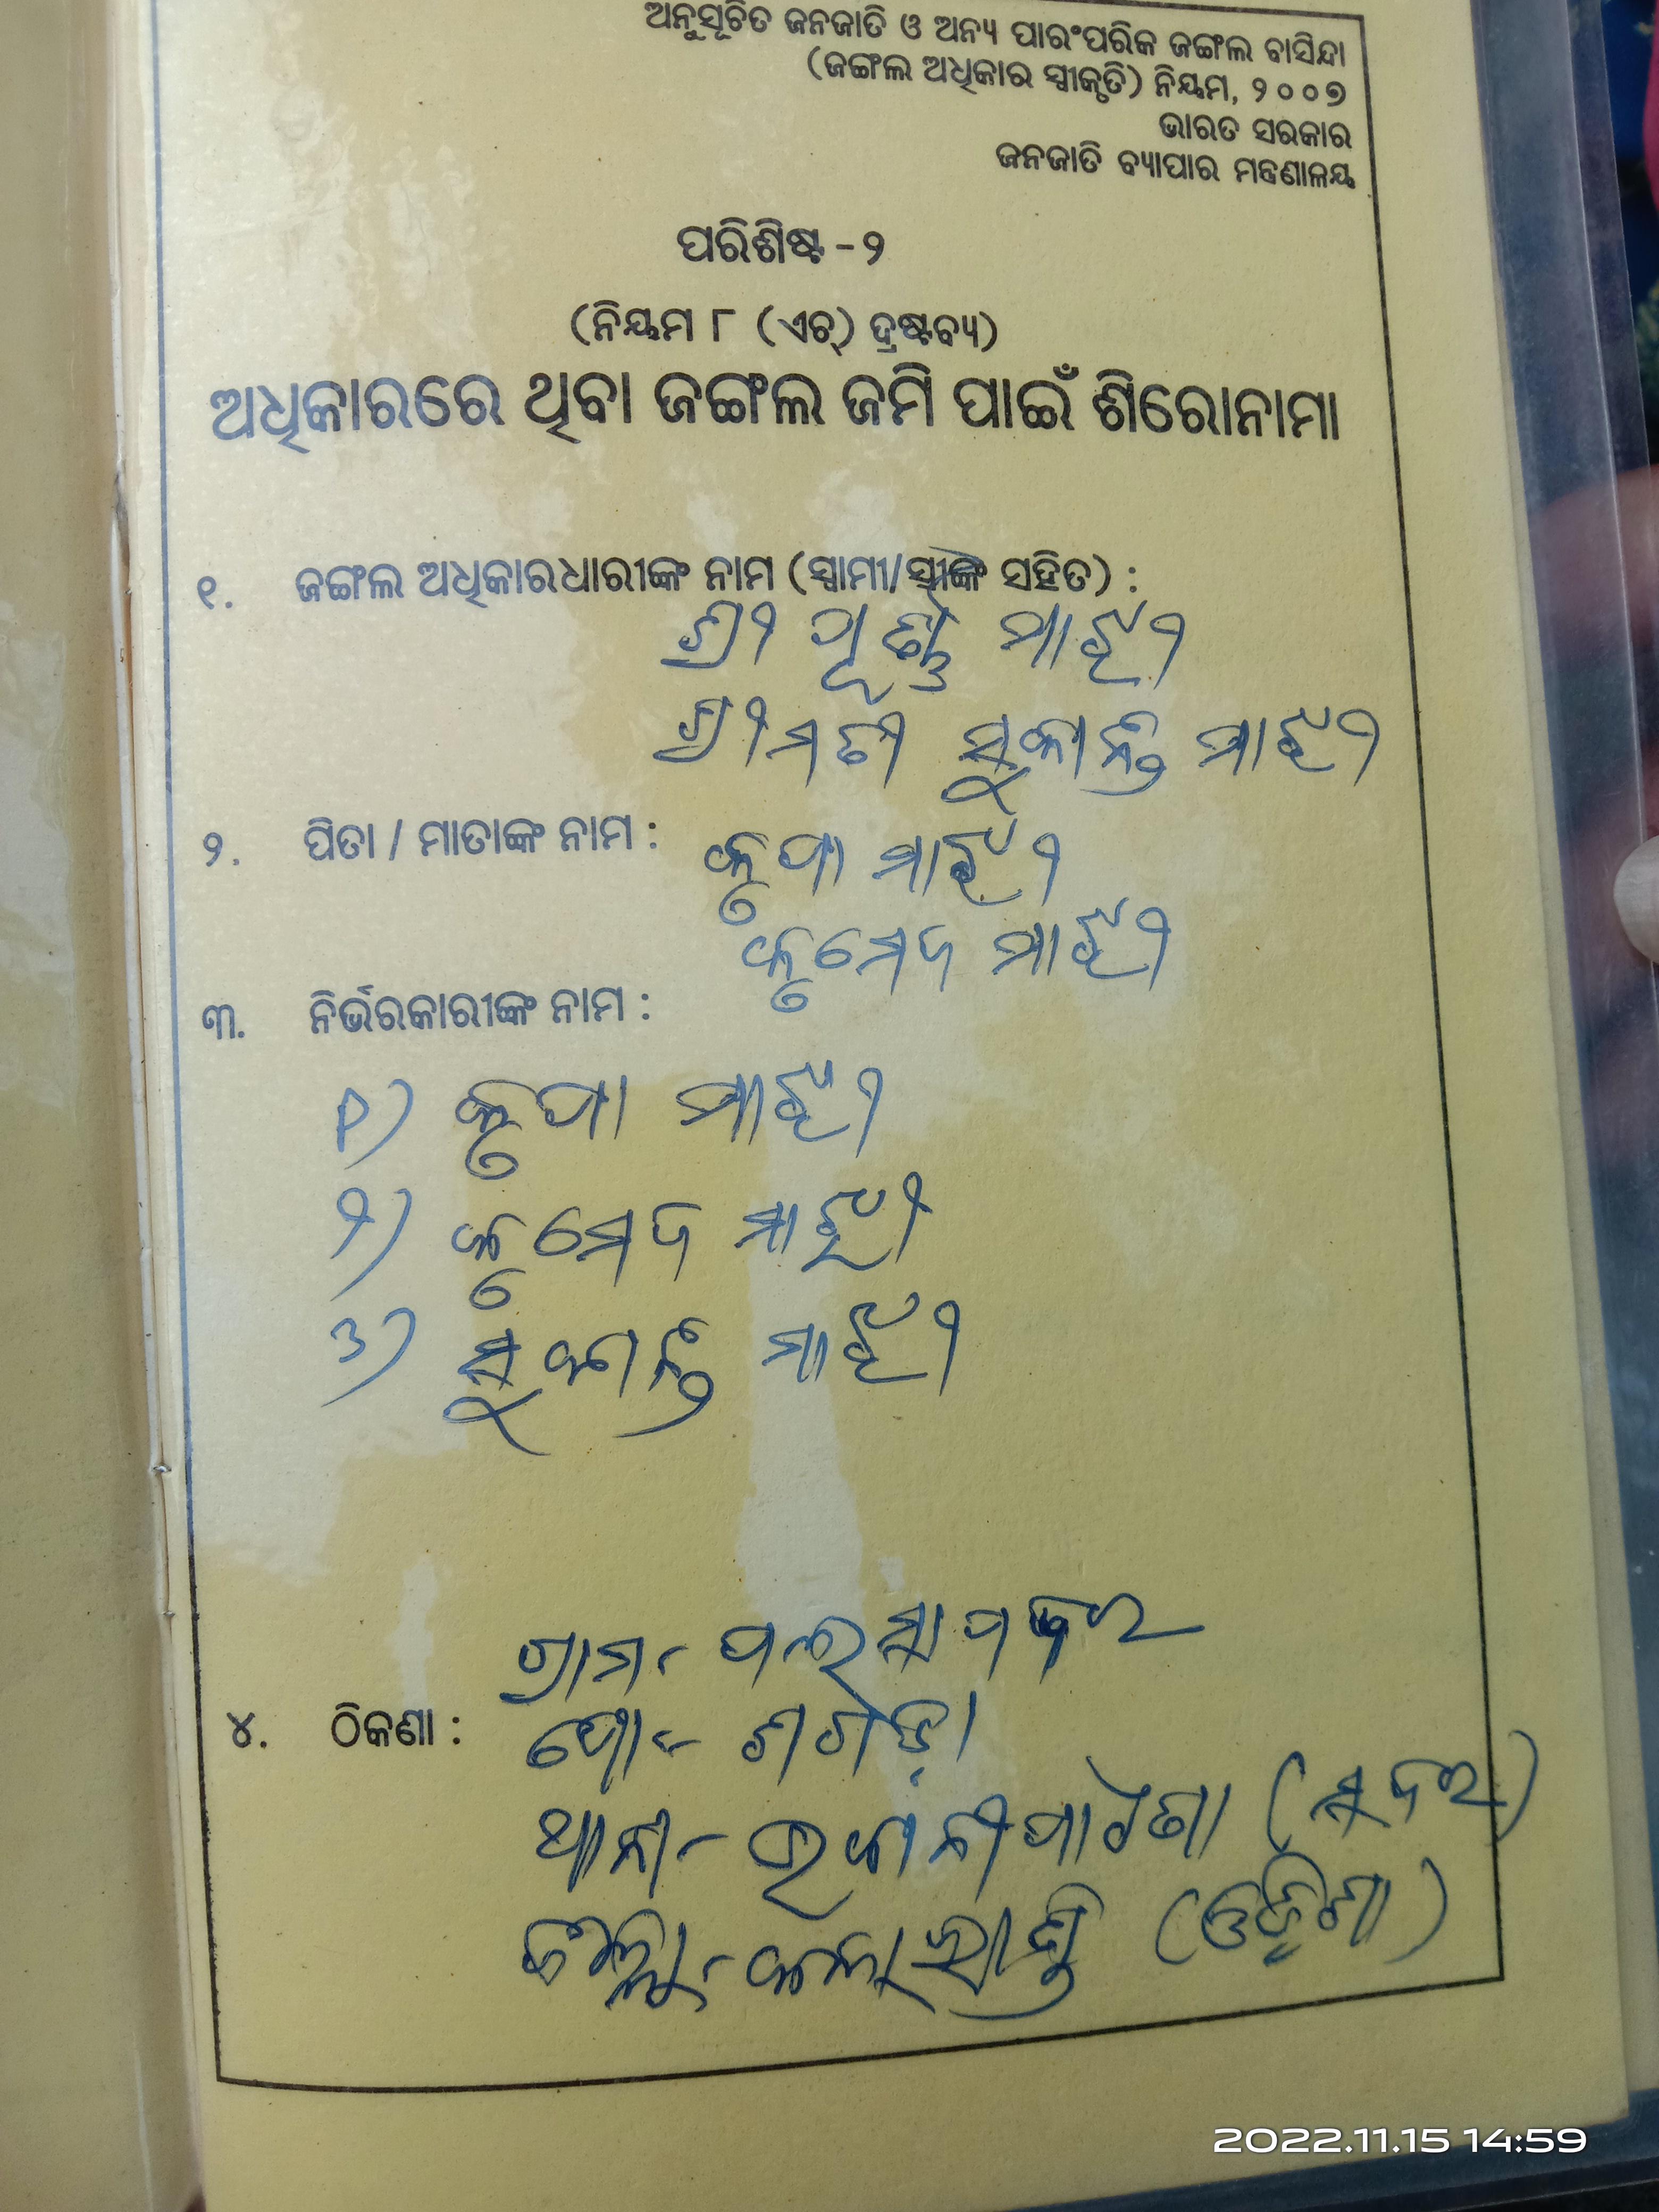 ଅନୁସୂଚିତ ଜନଜାତି ଓ ଅନ୍ୟ ପାରଂପରିକ ଜଙ୍ଗଲ ବାସିନ୍ଦା
(ଜଙ୍ଗଲ ଅଧିକାର ସ୍ୱୀକୃତି) ନିୟମ, ୨୦୦୭
ଭାରତ ସରକାର
ଜନଜାତି ବ୍ୟାପାର ମନ୍ତ୍ରଣାଳୟ
ପରିଶିଷ୍ଟ -୨
(ନିୟମ ୮ (ଏଚ୍) ଦ୍ରଷ୍ଟବ୍ୟ)
ଅଧିକାରରେ ଥିବା ଜଙ୍ଗଲ ଜମି ପାଇଁ ଶିରୋନାମା
୧. ଜଙ୍ଗଲ ଅଧିକାରଧାରୀଙ୍କ ନାମ (ସ୍ୱାମୀ/ସ୍ତ୍ରୀଙ୍କ ସହିତ) :
ଶ୍ରୀ ମାଝୀ
ଶ୍ରୀମତୀ ସୁକାନ୍ତି ମାଝୀ
୨. ପିତା / ମାତାଙ୍କ ନାମ : କୃପା ମାଝୀ
କୁମେଦ ମାଝୀ
୩. ନିର୍ଭରକାରୀଙ୍କ ନାମ :
୧) କୃପା ମାଝୀ
୨) କୁମେଦ ମାଝୀ
୩) ସୁକାନ୍ତି ମାଝୀ
ଗ୍ରାମ-
୪. ଠିକଣା : ପୋ- ଶଗଡ଼ା
ଥାନା- ଭବାନୀପାଟଣା (ସଦର)
ଜିଲ୍ଲା- କଳାହାଣ୍ଡି (ଓଡ଼ିଶା)
2022.11.15 14:59